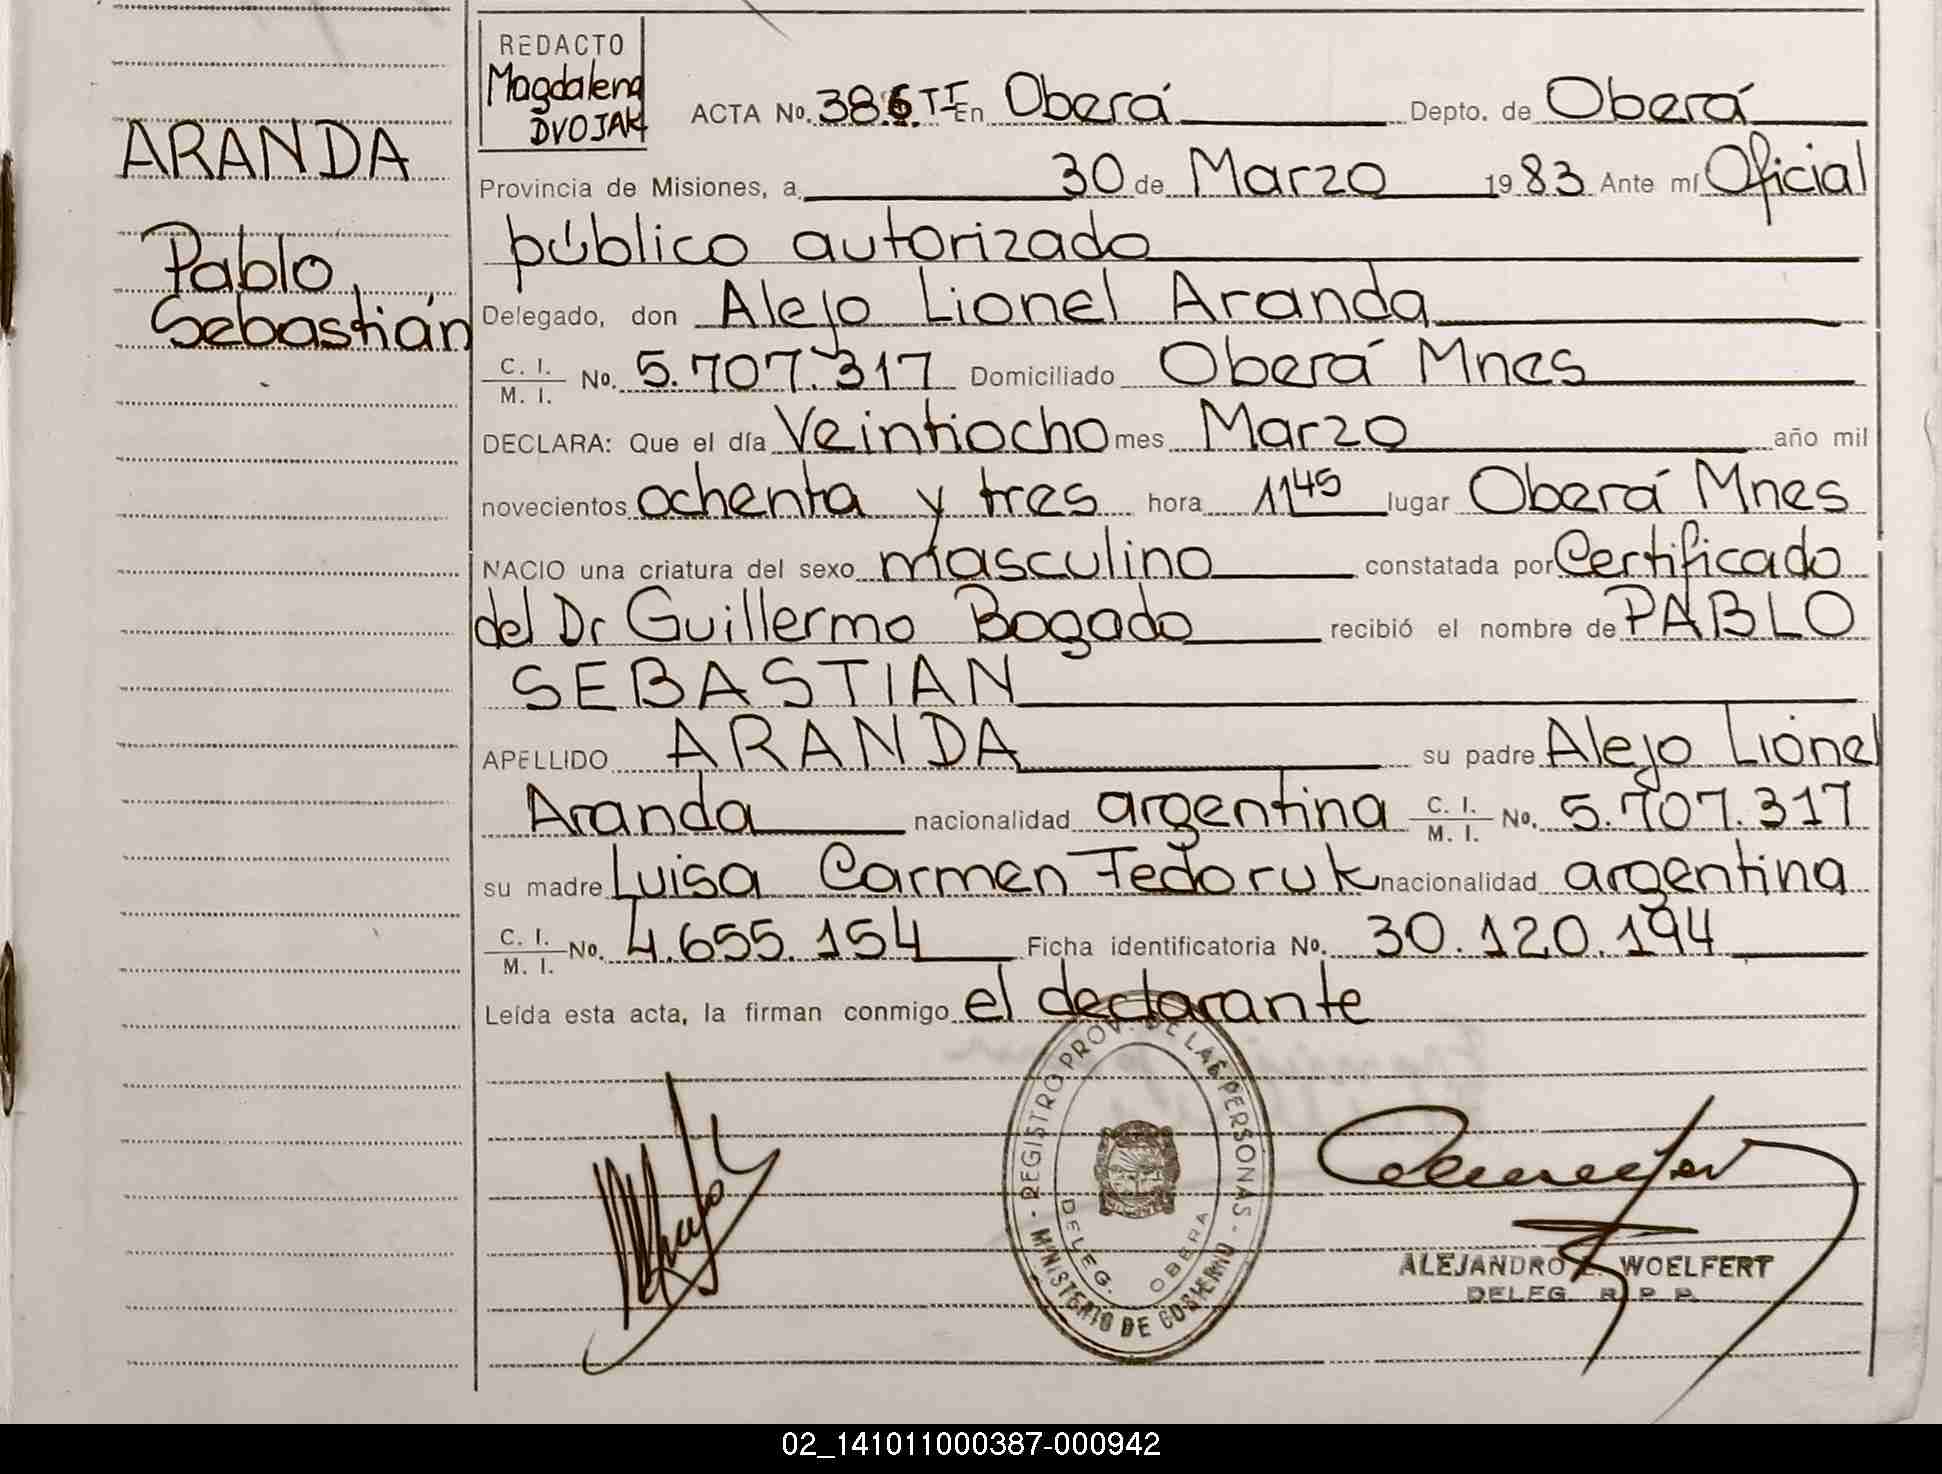 REDACTO
Magdalena
DVOJAK
ARANDA
Pablo
Sebastián
ACTA No. 386 TI En Oberá Depto. de Oberá
Provincia de Misiones, a 30 de Marzo 1983 Ante mí Oficial
público autorizado
Delegado, don Alejo Lionel Aranda
C. I. / M. I. No. 5.707.317 Domiciliado Oberá Mnes
DECLARA: Que el día Veintiocho mes Marzo año mil
novecientos ochenta y tres hora 11 45 lugar Oberá Mnes
NACIO una criatura del sexo masculino constatada por Certificado
del Dr Guillermo Bogado recibió el nombre de PABLO
SEBASTIAN
APELLIDO ARANDA su padre Alejo Lionel
Aranda nacionalidad argentina C. I. / M. I. No. 5.707.317
su madre Luisa Carmen Fedoruk nacionalidad argentina
C. I. / M. I. No. 4.655.154 Ficha identificatoria No. 30.120.194
Leída esta acta, la firman conmigo el declarante
- REGISTRO PROV. DE LAS PERSONAS -
MINISTERIO DE GOBIERNO
DELEG. OBERA
ALEJANDRO E. WOELFERT
DELEG. R. P. P.
02_141011000387-000942